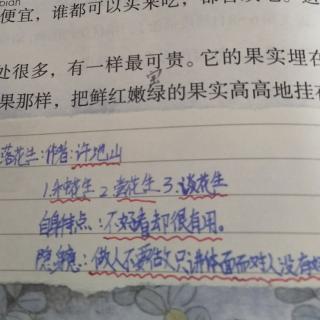 bian
便宜，谁都可以买来吃，都
处很多，有一样最可贵。它的果实埋在
宝
果那样，把鲜红嫩绿的果实高高地挂
落花生：作者：许地山
1.种花生 2.尝花生 3.谈花生
自身特点：不好看却很有用。
隐意：做人不要做只讲体面而对人没有好